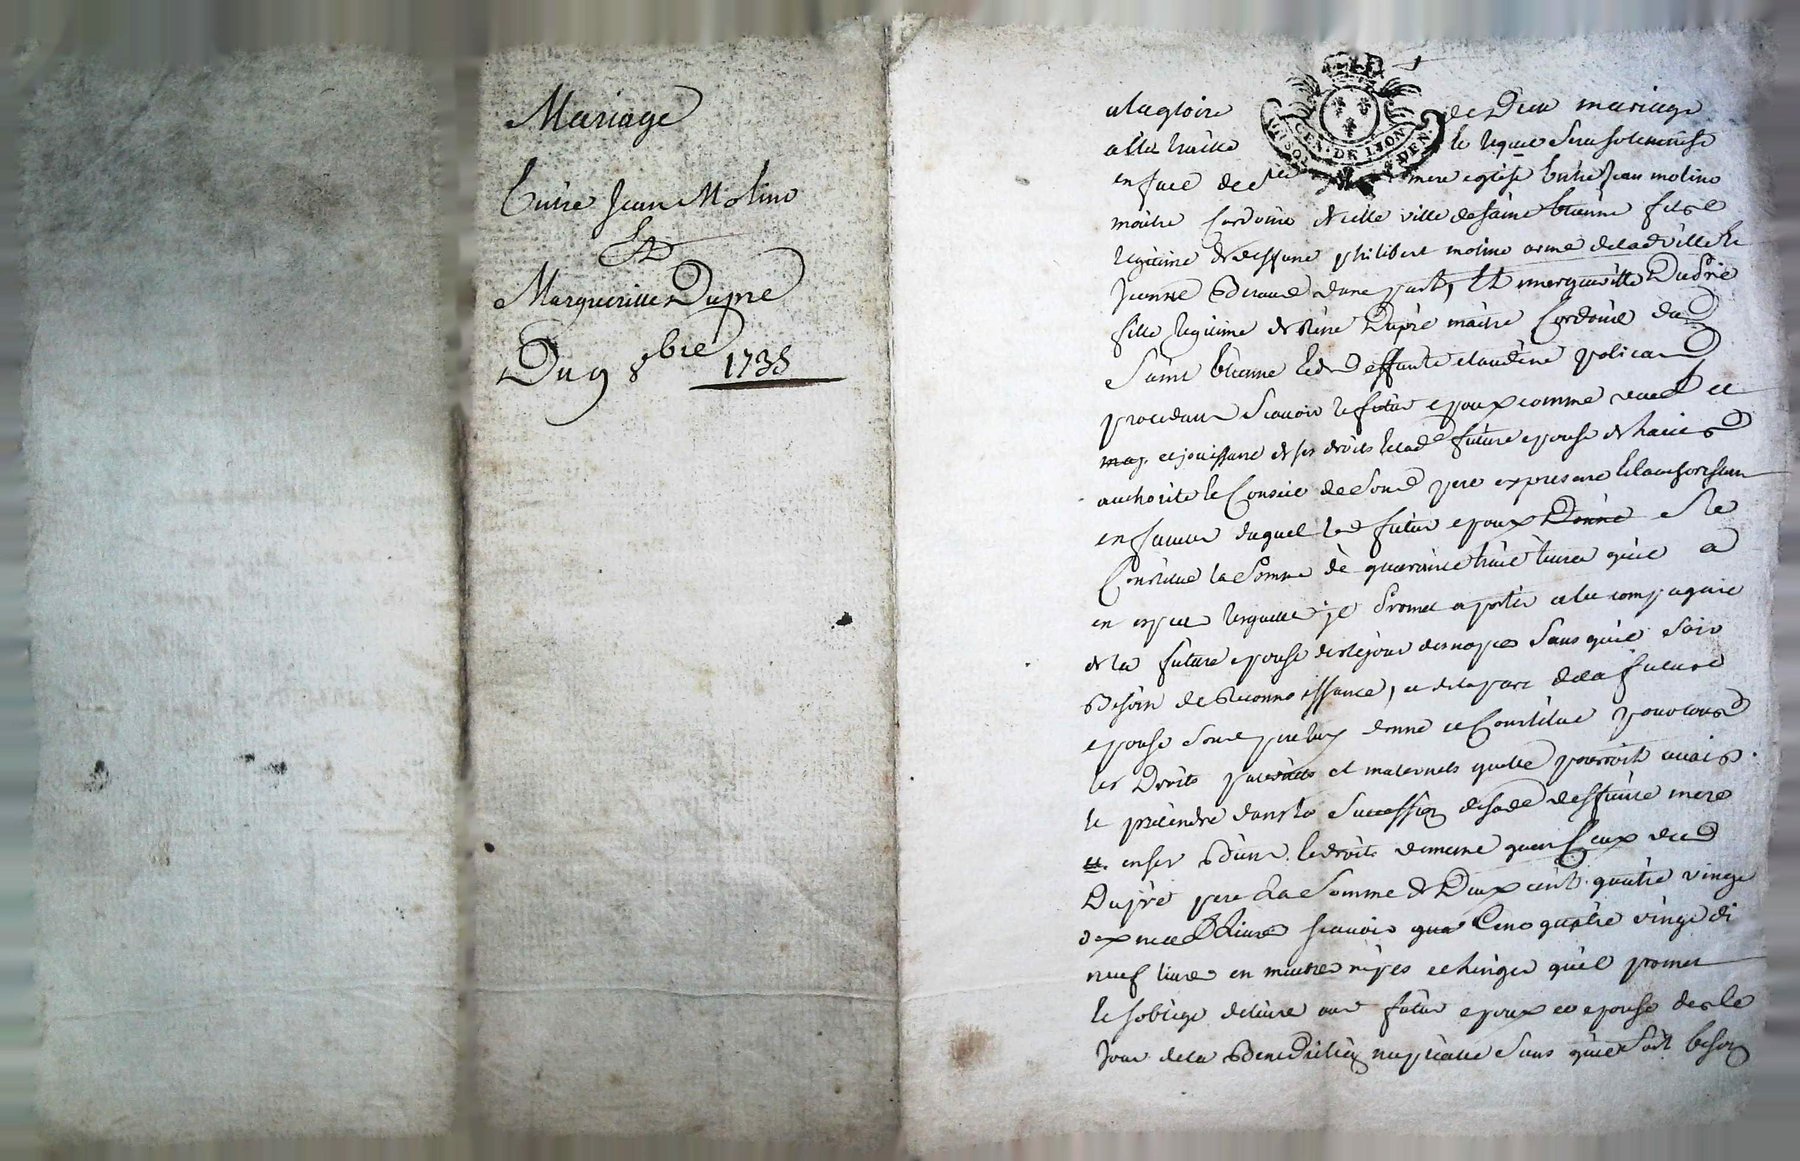 Mariage
Entre Jean Molino
Et
Marguerille Dupre
Du 9 8bre 1735
GEN. DE LYON
UN SOL
DEN.
a la gloire de Dieu mariage
a été traitté le lequel sera solemnisé
en face de Ste mere eglise Entre Jean molino
maitre Cordonie de cette ville de saint Etienne fils
legitime de deffunt philibert molino armé de lad ville Et
Jeanne d'une part, Et margueritte Dupré
fille legitime de Dupré maitre Cordonié dud
Saint Etienne Et de deffunte claudine policard
procedant scavoir le futur epoux comme
maj. et jouissant de ses droits Et lad future epouse de
authorité Et Conseil de Sond pere
en faveur duquel led futur epoux Donne Se
Constitue la Somme de quarante huit livres qu'il a
en espece lesquelle je promet aporter a la compagnie
de la future epouse des le jour des noces Sans qu'il Soit
Besoin de Reconnoissance, et de la part de la future
epouse Sond pere luy donne et Constitue pour tous
les Droits paternels et maternels quelle pourroit avoir
Et pretendre dans la Succession de sade deffunte mere
et. en ses Biens Et droits de meme que Ceux dud
Dupré pere La Somme de Deux cent quatre vingt
dix neuf Livres scavoir Cent quatre vingt di
neuf livres en meubles nipes et linges qu'il promet
Et soblige delivre aux futur epoux et epouse des le
Jour de la Benediction nuptialle Sans qu'il Soit besoin